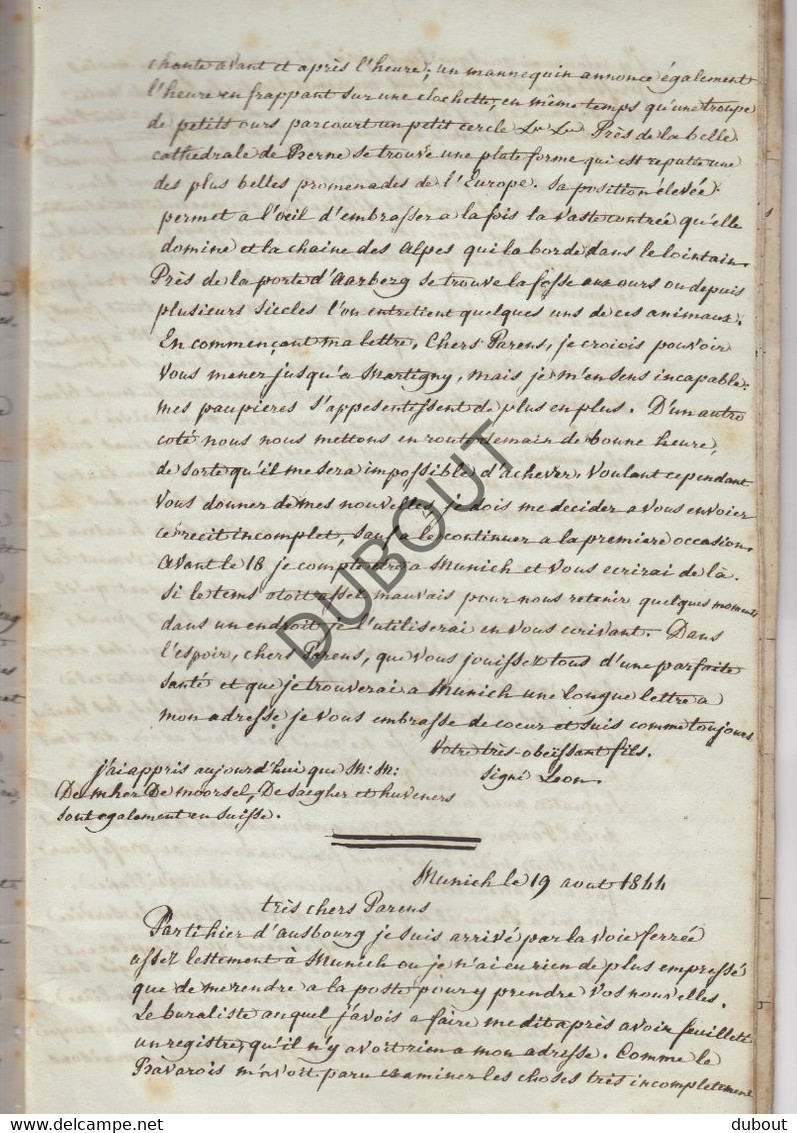 chante avant et après l'heure; un mannequin annonce également
l'heure en frappant sur une clochette, en même temps qu'une troupe
de petits ours parcourt un petit cercle &c &c Près de la belle
cathédrale de Berne se trouve une plate forme qui est reputée une
des plus belles promenades de l'Europe. Sa position élevée
permet a l'oeil d'embrasser a la fois la vaste contrée qu'elle
domine et la chaine des Alpes qui la borde dans le lointain.
Près de la porte d'Aarberg se trouve la fosse aux ours ou depuis
plusieurs siècles l'on entretient quelques uns de ces animaux.
En commençant ma lettre, Chers Parens, je croiois pouvoir
vous mener jusqu'a Martigny, mais je m'en sens incapable:
mes paupieres s'appesentissent de plus en plus. D'un autre
coté nous nous mettons en route demain de bonne heure,
de sorte qu'il me sera impossible d'achever. Voulant cependant
vous donner de mes nouvelles, je dois me decider a vous envoier
ce recit incomplet, sauf a le continuer a la premiere occasion.
Avant le 18 je compte être a Munich et vous ecrirai de là.
Si le tems etoit assez mauvais pour nous retenir quelques moments
dans un endroit je l'utiliserai en vous ecrivant. Dans
l'espoir, chers Parens, que vous jouissez tous d'une parfaite
santé et que je trouverai a Munich une longue lettre a
mon adresse je vous embrasse de coeur et suis comme toujours
Votre très obeissant fils.
signé Leon.
j'ai appris aujourd'hui que M. M:
De mher De moorsel, De Saegher et huveners
sont egalement en Suisse.
Munich le 19 aout 1844
très chers Parens
Parti hier d'Ausbourg je suis arrivé par la voie ferrée
assez lettement à Munich ou je n'ai eu rien de plus empressé
que de me rendre a la poste pour y prendre vos nouvelles.
Le buraliste auquel j'avois a faire me dit après avoir feuilleté
un registre, qu'il n'y avoit rien a mon adresse. Comme le
Bavarois m'avoit paru examiner les choses très incompletement
DUBOUT
dubout
www.delcampe.net